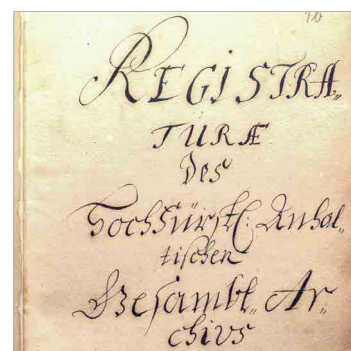 70
REGISTRA„
TURÆ
Des
Hochfürstl: Anhal„
tischen
Gesambt„ Ar„
chivs